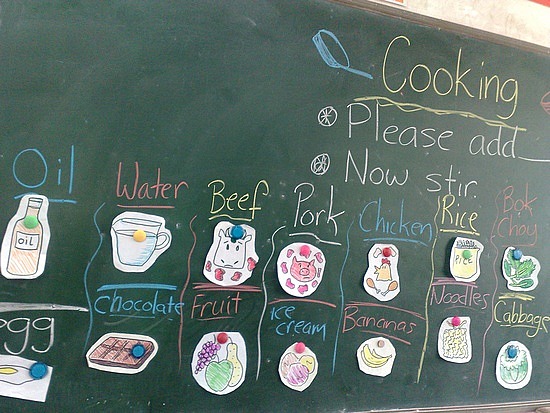 Cooking
Please add
Now stir
Oil
Water
Beef
Pork
Chicken
Rice
Bok Choy
OIL
Rice
egg
Chocolate
Fruit
Ice cream
Bananas
Noodles
Cabbage